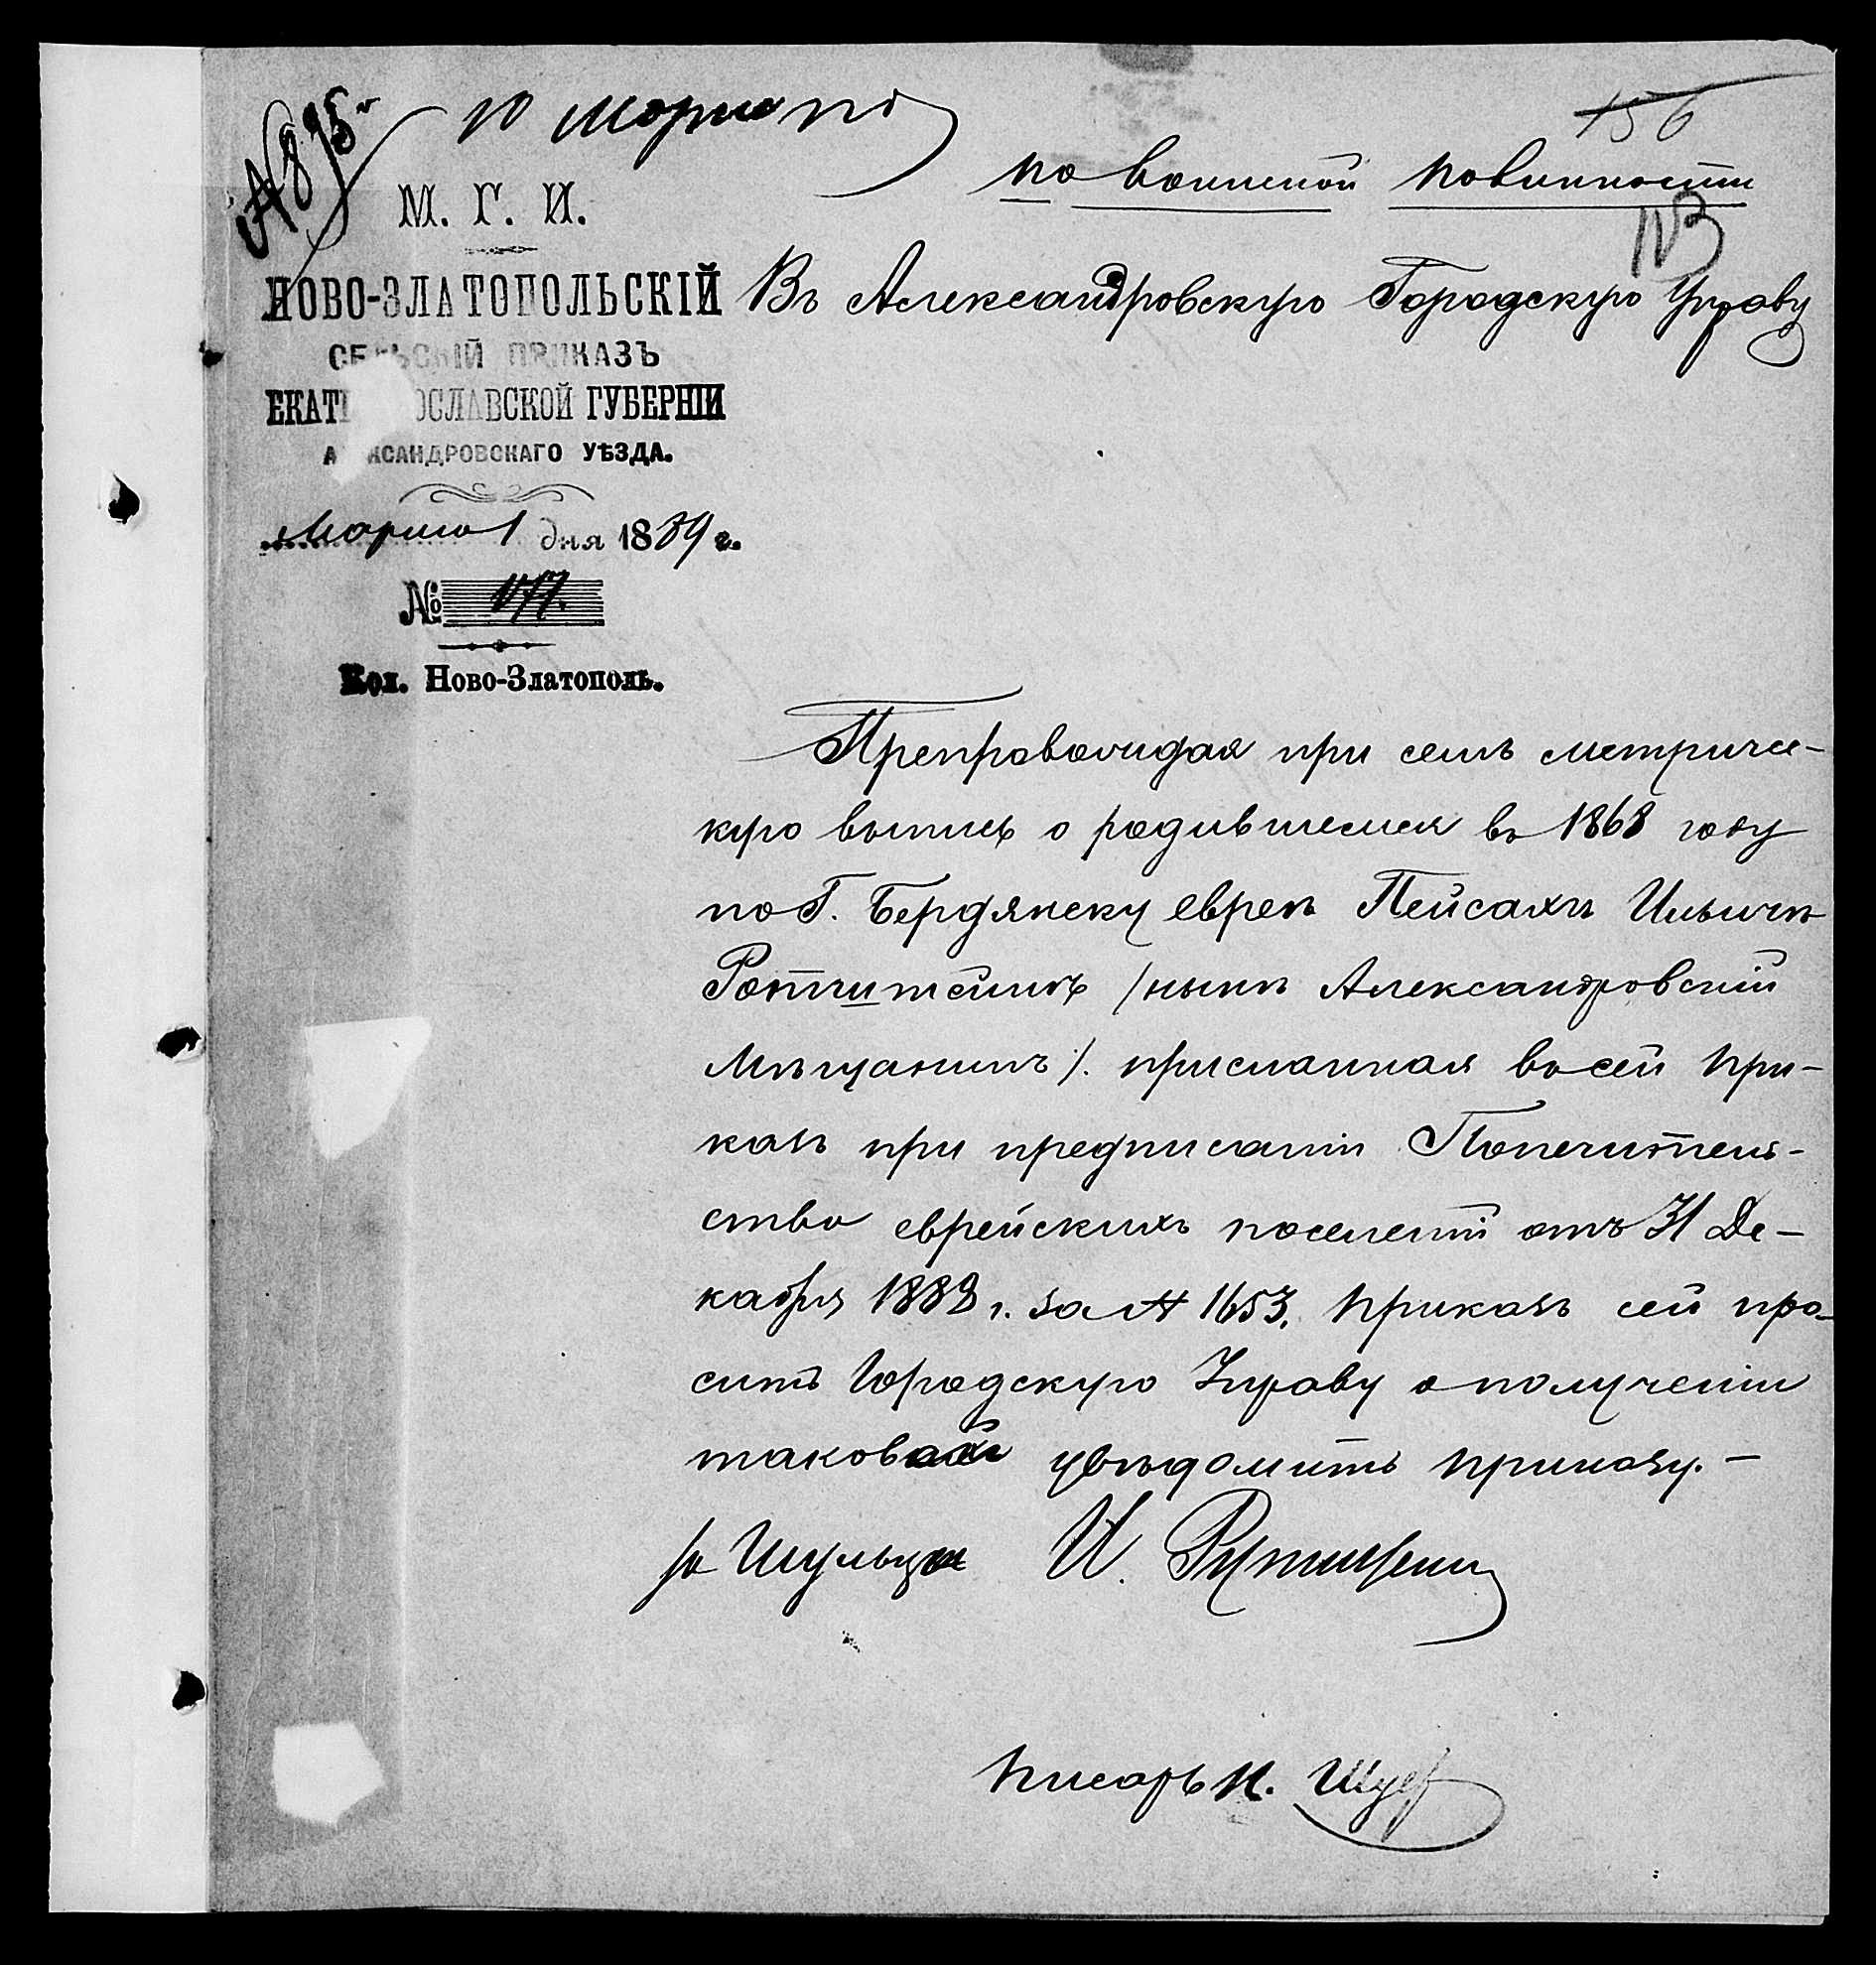 № 895
10 Марта
156
по воинской повинности
113
М. Г. И.
НОВО-ЗЛАТОПОЛЬСКІЙ
СЕЛЬСКІЙ ПРИКАЗЪ
ЕКАТЕРИНОСЛАВСКОЙ ГУБЕРНІИ
АЛЕКСАНДРОВСКАГО УѢЗДА.
Марта 1 дня 1889 г.
№ 177.
Кол. Ново-Златополь.
Въ Александровскую Городскую Управу
Препровождая при семъ метричес-
кую выпись о родившемся въ 1868 году
по Г. Бердянску еврея Пейсахъ Ильичъ
Ротштейнъ /нынѣ Александровскій
Мѣщанинъ/. присланная въ сей При-
казъ при предписаніи Попечитель-
ства еврейскихъ поселеній отъ 31 Де-
кабря 1888 г. за № 1653, Приказъ сей про-
ситъ Городскую Управу о полученіи
таковой увѣдомить приказу.-
за Шульца И.
Писарь И.